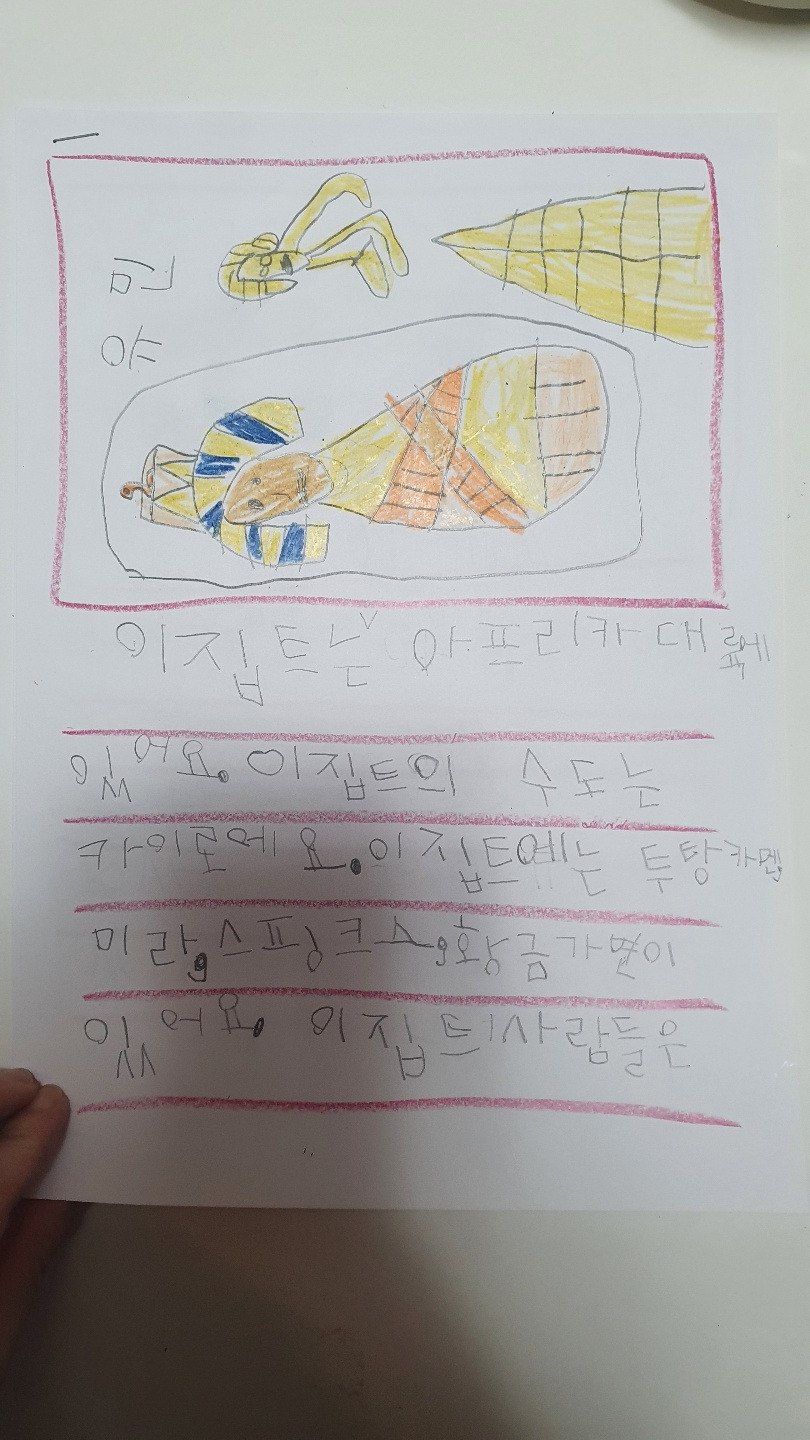 이집트는 아프리카 대륙에
있어요. 이집트의 수도는
카이로에요. 이집트에는 투탕카멘
미라, 스핑크스, 황금가면이
있어요. 이집트사람들은